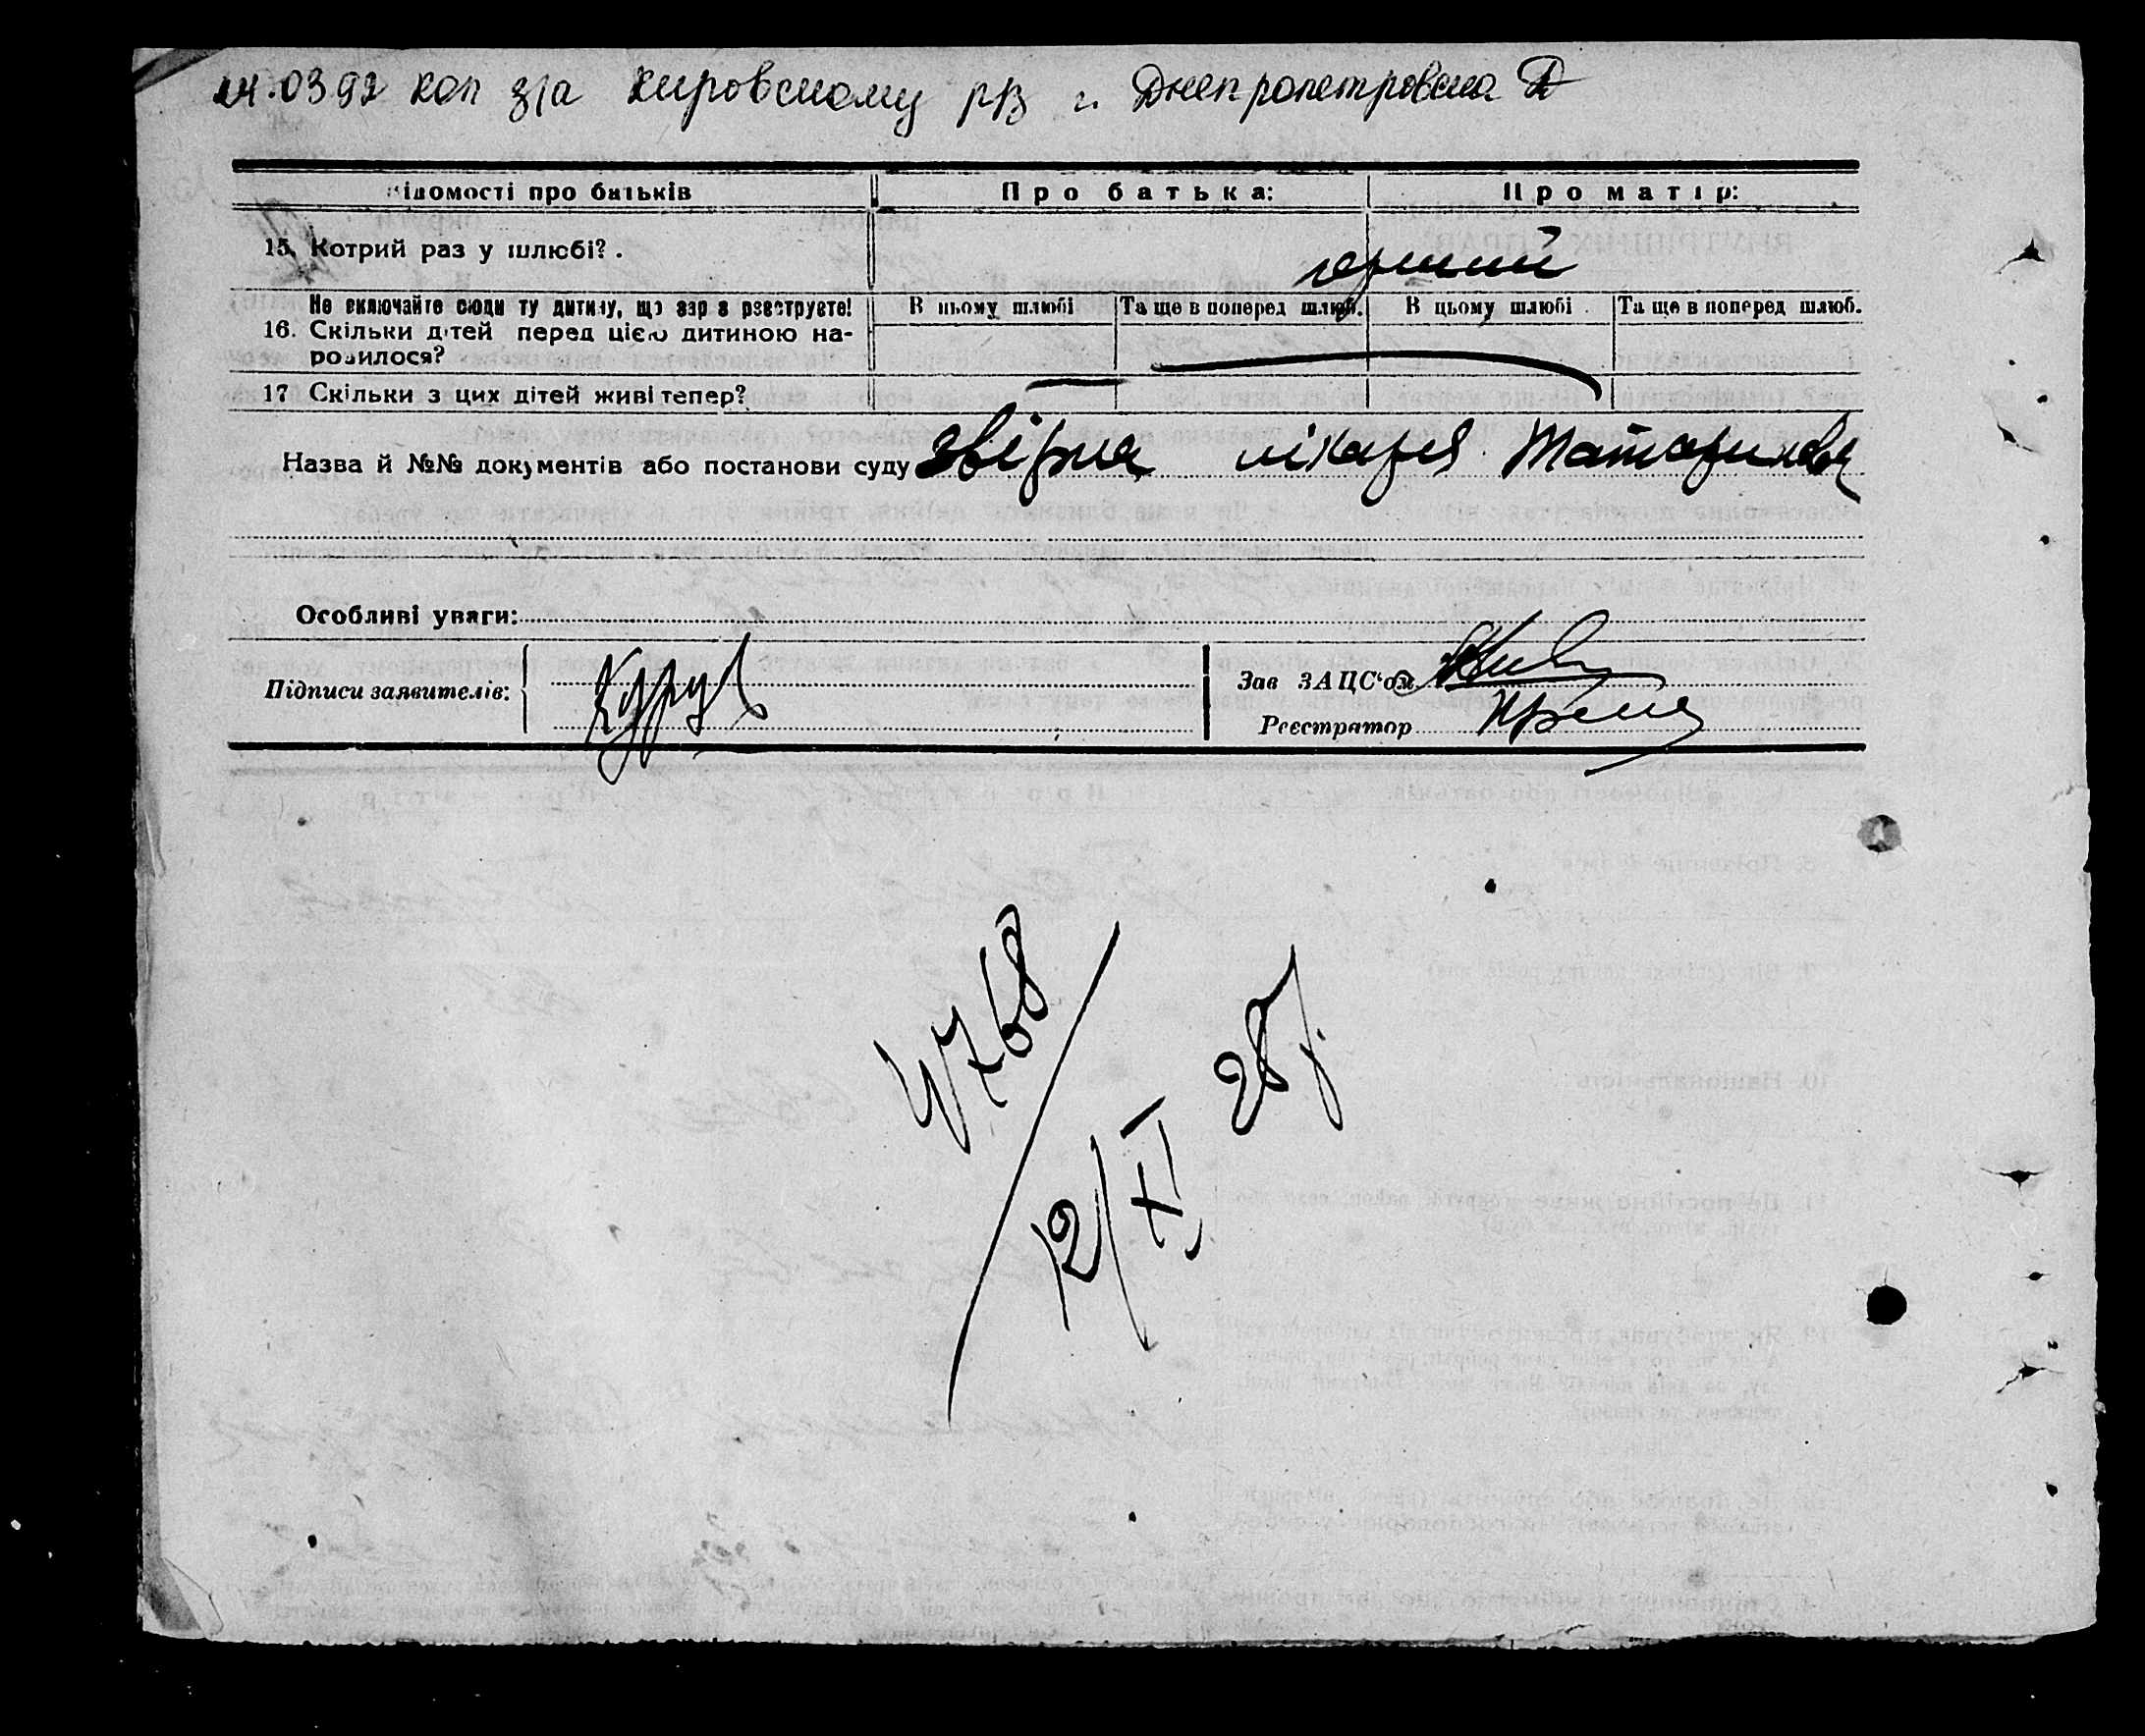 24.03.92 коп з/а Кировскому рв г. Днепропетровска
Відомості про батьків Про батька: Про матір:
15. Котрий раз у шлюбі? перший
Не включайте сюди ту дитину, що зараз реєструєте! В цьому шлюбі Та ще в поперед шлюб. В цьому шлюбі Та ще в поперед шлюб.
16. Скільки дітей перед цією дитиною на-
родилося?
17 Скільки з цих дітей живі тепер?
Назва й №№ документів або постанови суду лікаря
Особливі уваги:
Підписи заявителів:
Зав ЗАЦС'ом
Реєстратор
4768
12/XI 28 р.